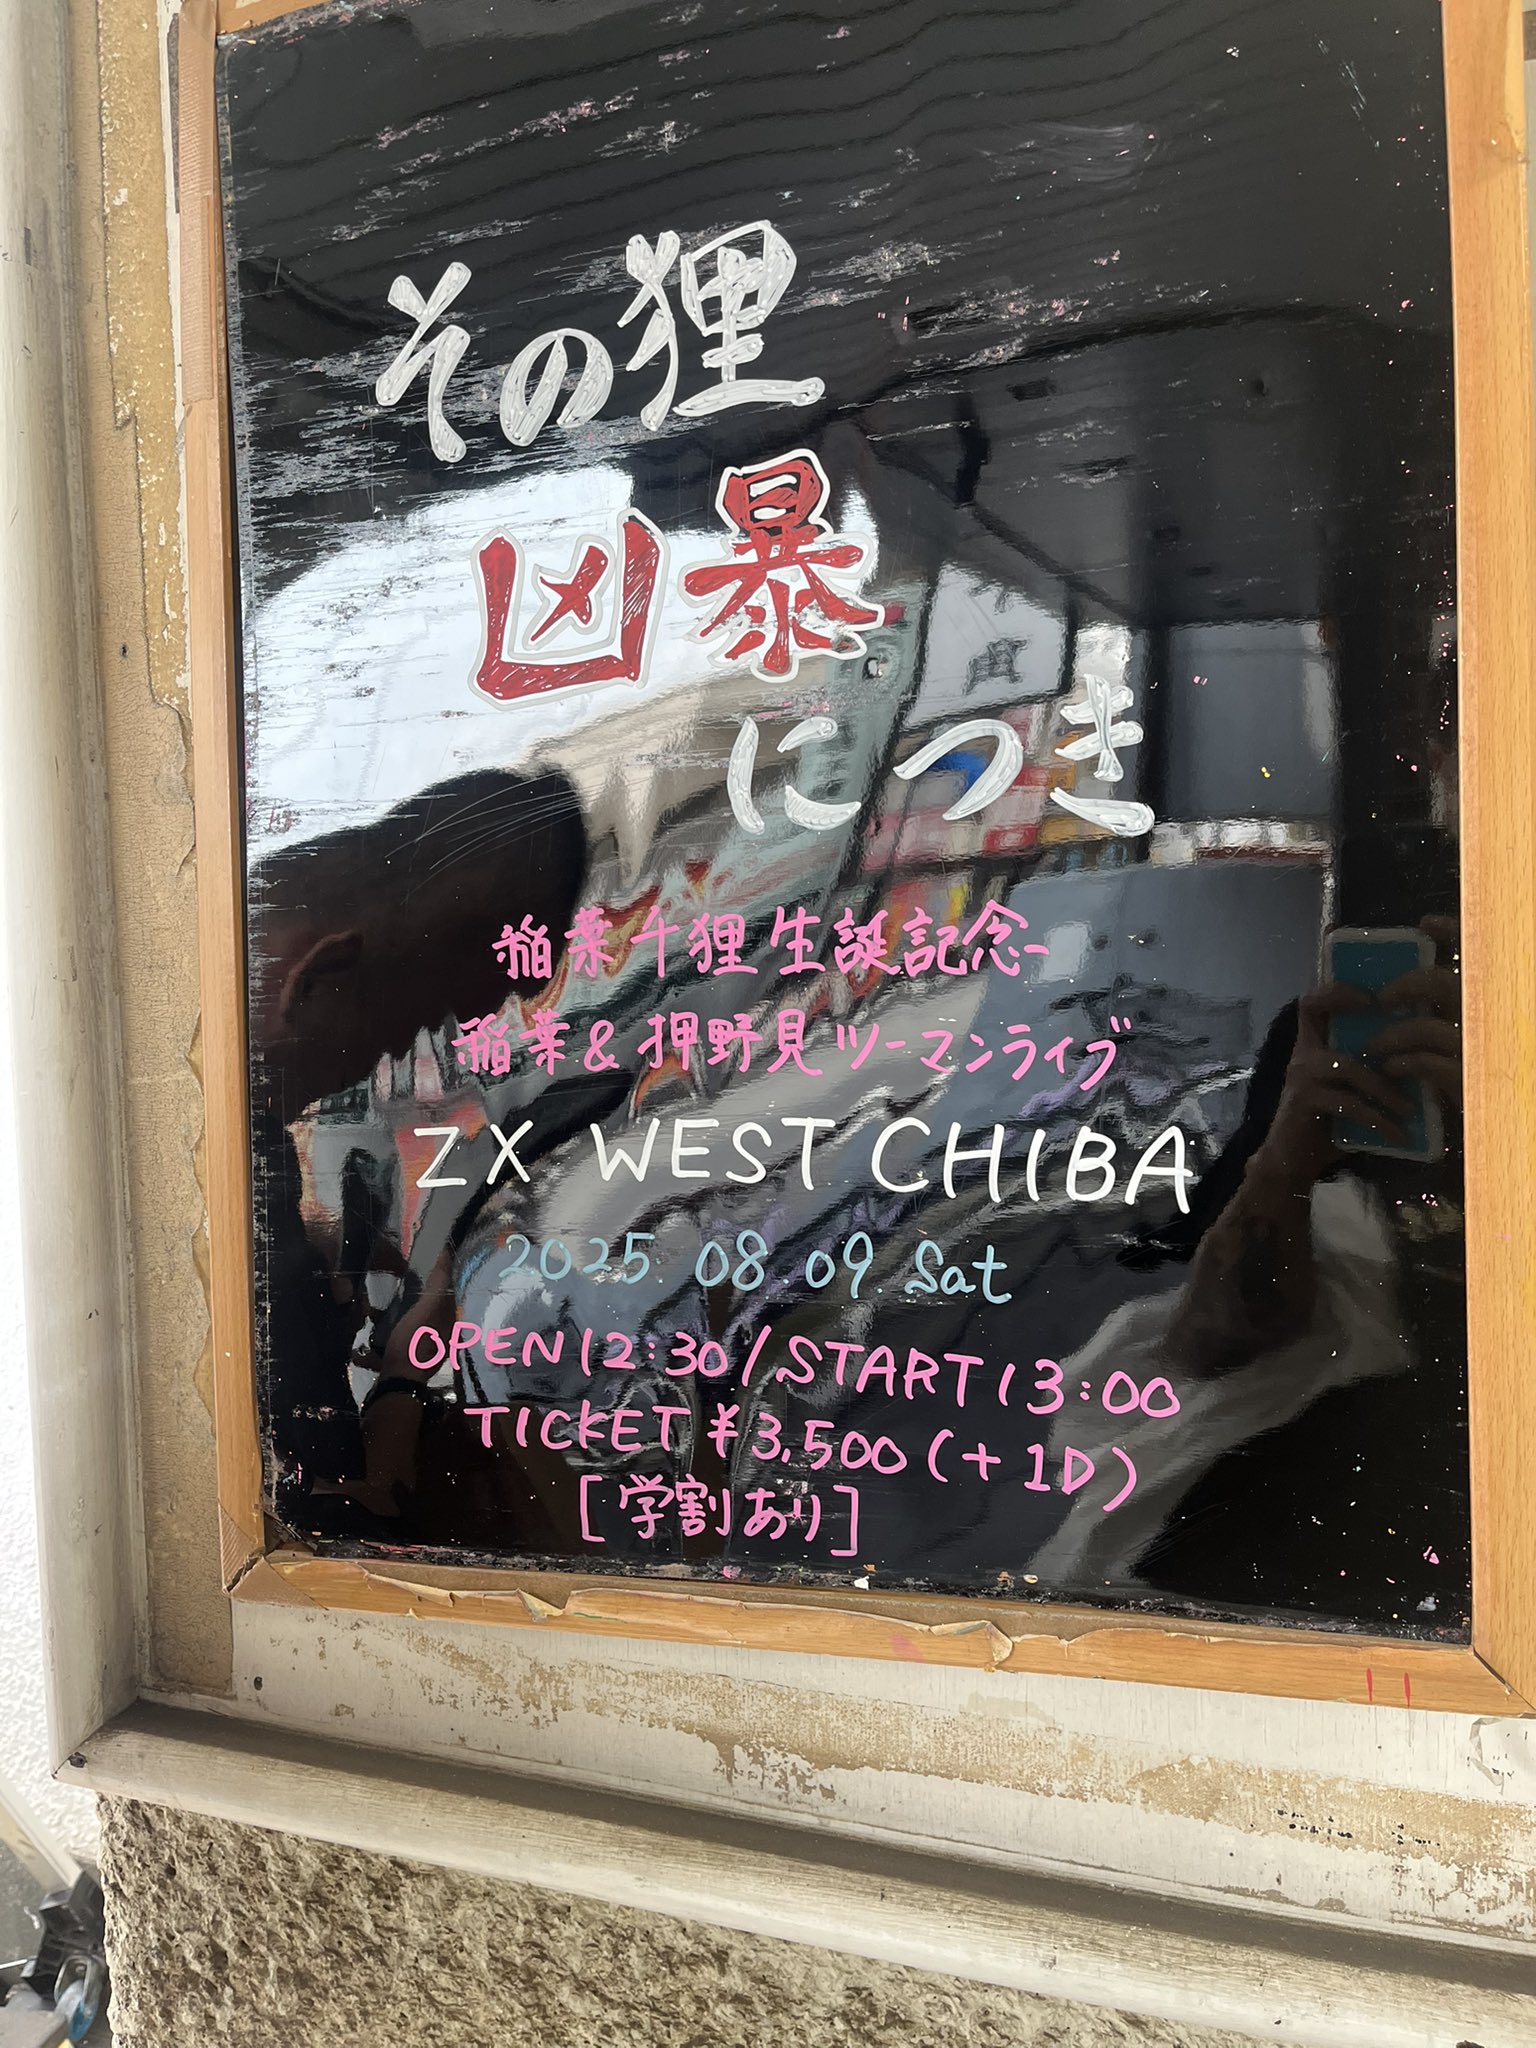 その狸
凶暴
につき
稲葉千狸生誕記念
稲葉&押野見ツーマンライブ
ZX WEST CHIBA
2025.08.09.Sat
OPEN12:30/START13:00
TICKET ¥3,500(+1D)
[学割あり]